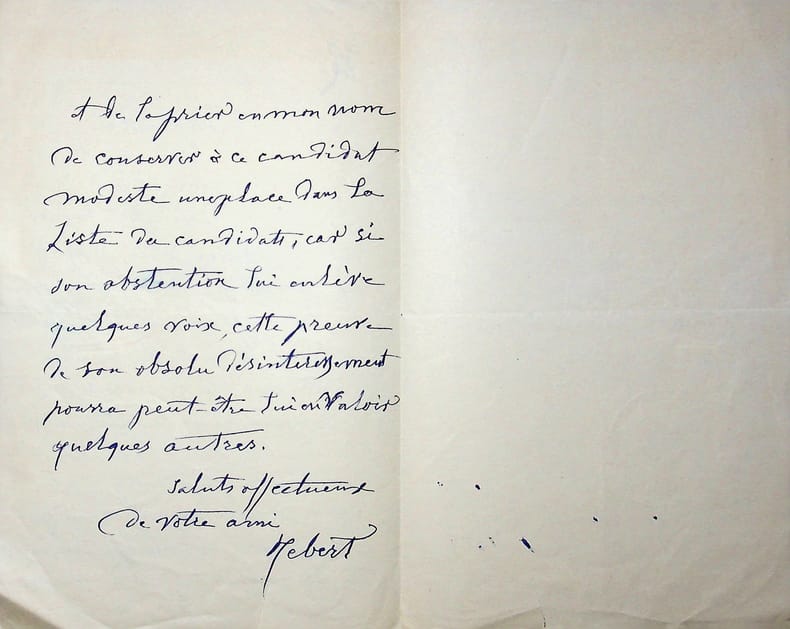 et de la prier en mon nom
de conserver à ce candidat
modeste une place dans la
Liste des candidats, car si
son abstention lui enlève
quelques voix, cette preuve
de son absolu désintéressement
pourra peut-être lui en valoir
quelques autres.
Saluts affectueux
de votre ami
Hebert